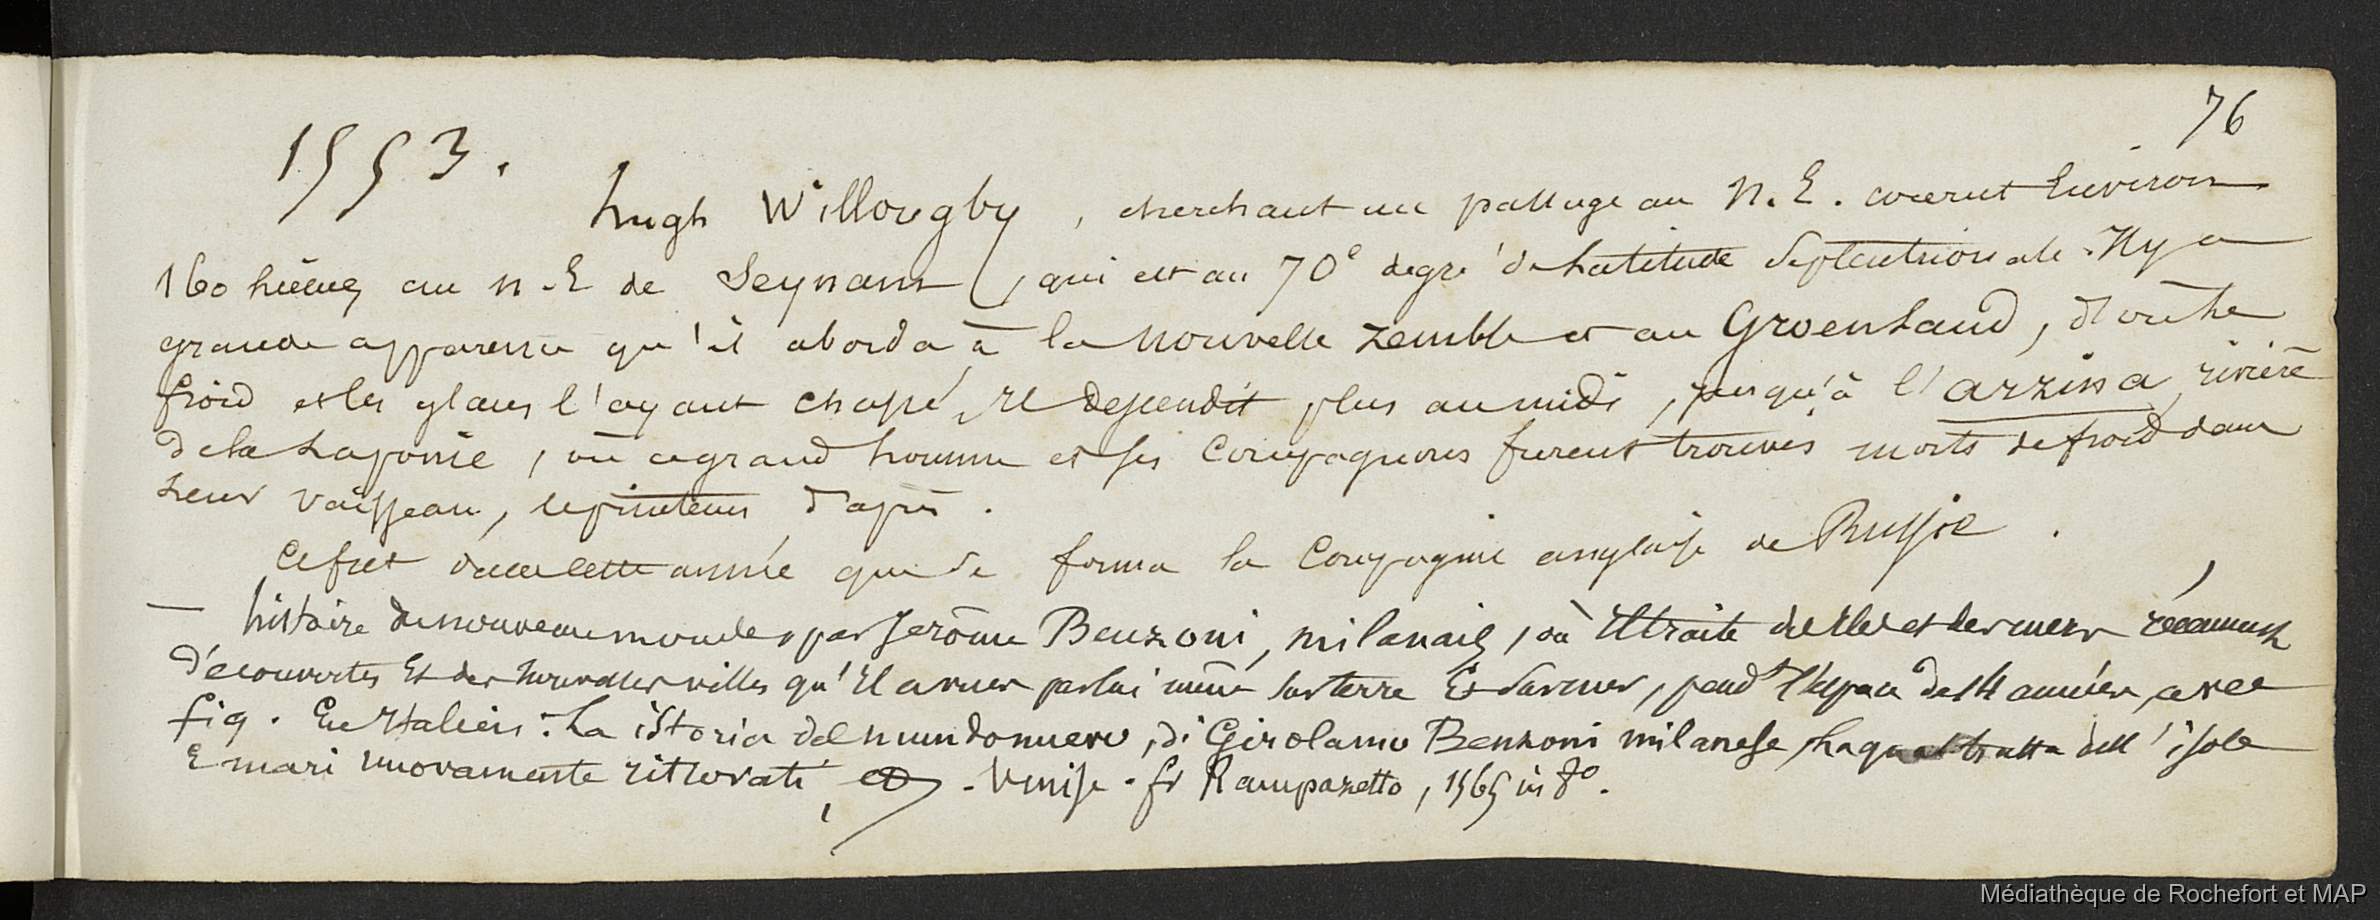 76
1553.
hugh Willougby, cherchant un passage au N.E. courut Environ
160 lieues au N.E de Seynam, qui est au 70e degré de Latitude septentrionale. Il y a
grande apparence qu'il aborda à la nouvelle Zemble et au Groenland, d'où le
froid et les glaces l'ayant chassé, Il descendit plus au midi, jusqu'à l'arzina, rivière
de la Laponie, où ce grand homme et ses Compagnons furent trouvés morts de froid dans
Leur vaisseau, le printems d'après.
Ce fut dans cette année que se forma la Compagnie anglaise de Russie.
— histoire du nouveau monde, par Jerôme Benzoni, milanais, où Il traite des Iles et des mers récemment
découvertes Et des nouvelles villes qu'Il a vues par lui même sur terre Et sur mer, pendt l'espace de 14 années, avec
fig. En Italien: La istoria del mundo nuevo, di Girolamo Benzoni milanese, la qual tratta dell'isole
E mari nuovamente ritrovati, &c. Venise. fr Rampazetto, 1565 in 8o.
Médiathèque de Rochefort et MAP